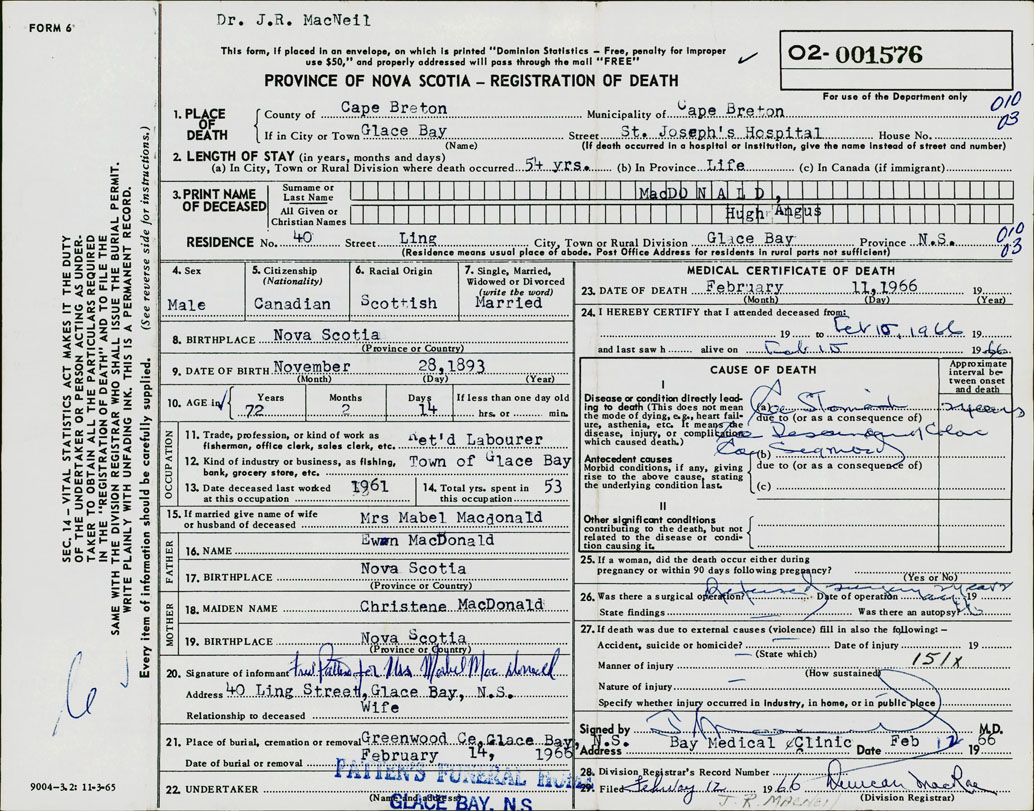 Dr. J.R. MacNeil
FORM 6
This form, if placed in an envelope, on which is printed "Dominion Statistics – Free, penalty for improper
use $50," and properly addressed will pass through the mail "FREE"
PROVINCE OF NOVA SCOTIA – REGISTRATION OF DEATH
02-001576
For use of the Department only
010
03
1. PLACE OF DEATH
County of Cape Breton Municipality of Cape Breton
If in City or Town Glace Bay Street St. Joseph's Hospital House No.
(Name) (If death occurred in a hospital or institution, give the name instead of street and number)
2. LENGTH OF STAY (in years, months and days)
(a) In City, Town or Rural Division where death occurred 54 yrs. (b) In Province Life (c) In Canada (if immigrant)
3. PRINT NAME OF DECEASED
Surname or Last Name MacDONALD,
All Given or Christian Names Hugh Angus
RESIDENCE No. 40 Street Ling City, Town or Rural Division Glace Bay Province N.S.
(Residence means usual place of abode. Post Office Address for residents in rural parts not sufficient)
010
03
SEC. 14 – VITAL STATISTICS ACT MAKES IT THE DUTY
OF THE UNDERTAKER OR PERSON ACTING AS UNDER-
TAKER TO OBTAIN ALL THE PARTICULARS REQUIRED
IN THE "REGISTRATION OF DEATH" AND TO FILE THE
SAME WITH THE DIVISION REGISTRAR WHO SHALL ISSUE THE BURIAL PERMIT.
WRITE PLAINLY WITH UNFADING INK. THIS IS A PERMANENT RECORD.
Every item of information should be carefully supplied. (See reverse side for instructions.)
4. Sex
Male
5. Citizenship
(Nationality)
Canadian
6. Racial Origin
Scottish
7. Single, Married,
Widowed or Divorced
(write the word)
Married
8. BIRTHPLACE Nova Scotia
(Province or Country)
9. DATE OF BIRTH November 28, 1893
(Month) (Day) (Year)
10. AGE in
Years 72
Months 2
Days 14
If less than one day old
hrs. or min.
OCCUPATION
11. Trade, profession, or kind of work as
fisherman, office clerk, sales clerk, etc. Ret'd Labourer
12. Kind of industry or business, as fishing,
bank, grocery store, etc. Town of Glace Bay
13. Date deceased last worked
at this occupation 1961
14. Total yrs. spent in
this occupation 53
15. If married give name of wife
or husband of deceased Mrs Mabel Macdonald
FATHER
16. NAME Ewan MacDonald
17. BIRTHPLACE Nova Scotia
(Province or Country)
MOTHER
18. MAIDEN NAME Christene MacDonald
19. BIRTHPLACE Nova Scotia
(Province or Country)
20. Signature of informant for Mrs Mabel MacDonald
Address 40 Ling Street, Glace Bay, N.S.
Relationship to deceased Wife
21. Place of burial, cremation or removal Greenwood Ce, Glace Bay, N.S.
Date of burial or removal February 14, 1966
22. UNDERTAKER PATTEN'S FUNERAL HOME
(Name and address)
GLACE BAY, N.S
9004-3.2: 11-3-65
MEDICAL CERTIFICATE OF DEATH
23. DATE OF DEATH February 11, 1966 19
(Month) (Day) (Year)
24. I HEREBY CERTIFY that I attended deceased from:
19 to Feb 10, 1966 19
and last saw h alive on Feb 10 1966
CAUSE OF DEATH
Approximate
interval be-
tween onset
and death
I
Disease or condition directly lead-
ing to death (This does not mean
the mode of dying, e.g., heart fail-
ure, asthenia, etc. It means the
disease, injury, or complication
which caused death.)
(a) Ca Stomach 2 years
due to (or as a consequence of)
Antecedent causes
Morbid conditions, if any, giving
rise to the above cause, stating
the underlying condition last.
(b)
due to (or as a consequence of)
(c)
II
Other significant conditions
contributing to the death, but not
related to the disease or condi-
tion causing it.
25. If a woman, did the death occur either during
pregnancy or within 90 days following pregnancy?
(Yes or No)
26. Was there a surgical operation? Date of operation 19
State findings Was there an autopsy?
27. If death was due to external causes (violence) fill in also the following: –
Accident, suicide or homicide? Date of injury 19
(State which)
Manner of injury 151X
(How sustained)
Nature of injury
Specify whether injury occurred in industry, in home, or in public place
Signed by M.D.
Address Bay Medical Clinic Date Feb 12 1966
28. Division Registrar's Record Number
29. Filed February 12 1966 Duncan MacRae
(Division Registrar)
J.R. MACNEIL